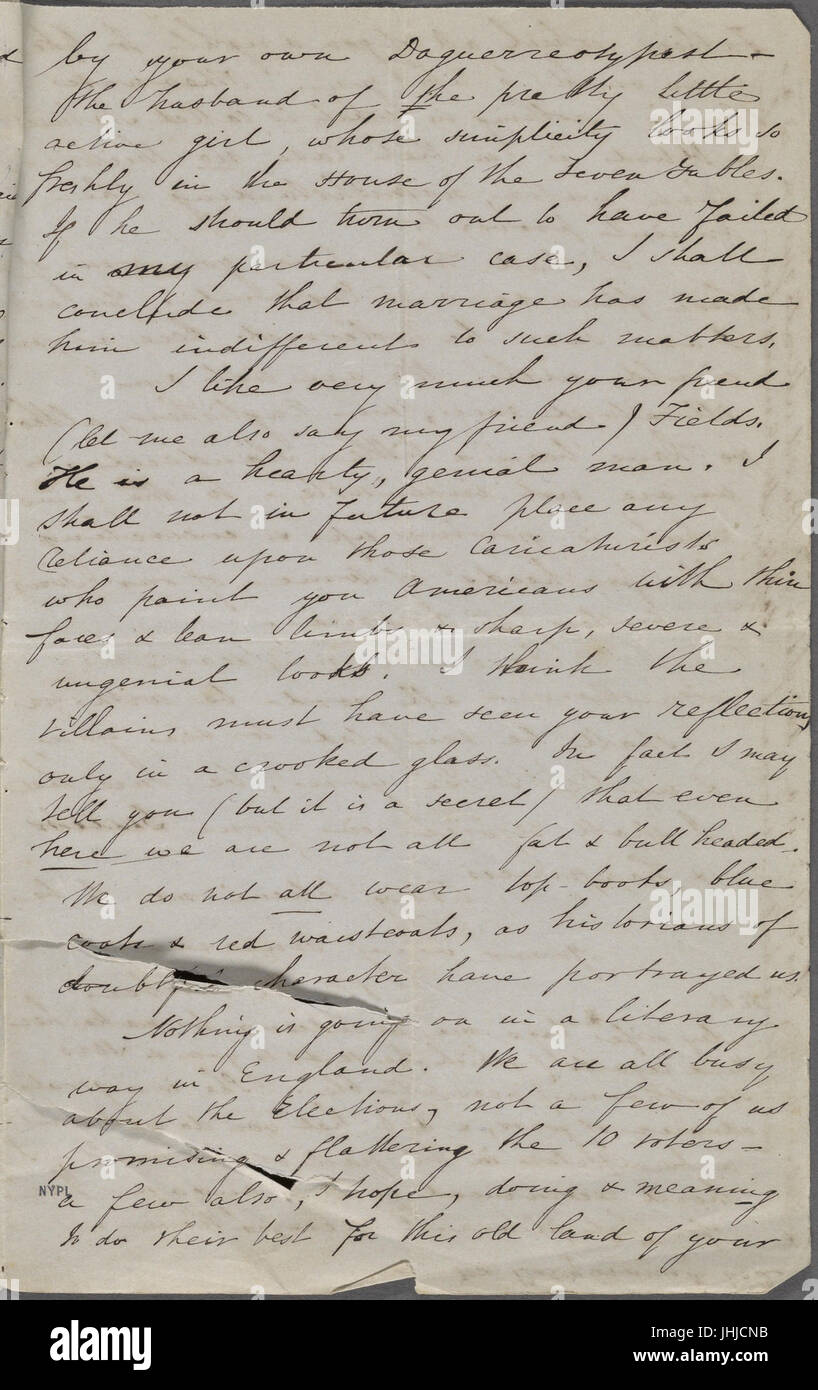 by your own Daguerreotypist –
the husband of the pretty little
active girl, whose simplicity looks so
freshly in the House of the Seven Gables.
If he should turn out to have failed
in my particular case, I shall
conclude that marriage has made
him indifferent to such matters.
I like very much your friend
(let me also say my friend) Fields.
He is a hearty, genial man. I
shall not in future place any
reliance upon those Caricaturists
who paint you Americans with thin
faces & lean limbs & sharp, severe &
ungenial looks. I think the
villains must have seen your reflections
only in a crooked glass. In fact I may
tell you (but it is a secret) that even
here we are not all fat & bull headed.
We do not all wear top-boots, blue
coats & red waistcoats, as historians of
doubtful character have portrayed us.
Nothing is going on in a literary
way in England. We are all busy
about the Elections, not a few of us
promising & flattering the 10 voters –
NYPL
a few also, I hope, doing & meaning
to do their best for this old land of your
alamy
Image ID: JHJCNB
www.alamy.com